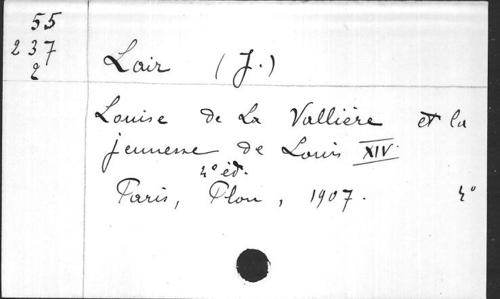 55
237
2
Lair (J.)
Louise de La Vallière et la
jeunesse de Louis XIV.
4° éd.
Paris, Plon, 1907. 4°